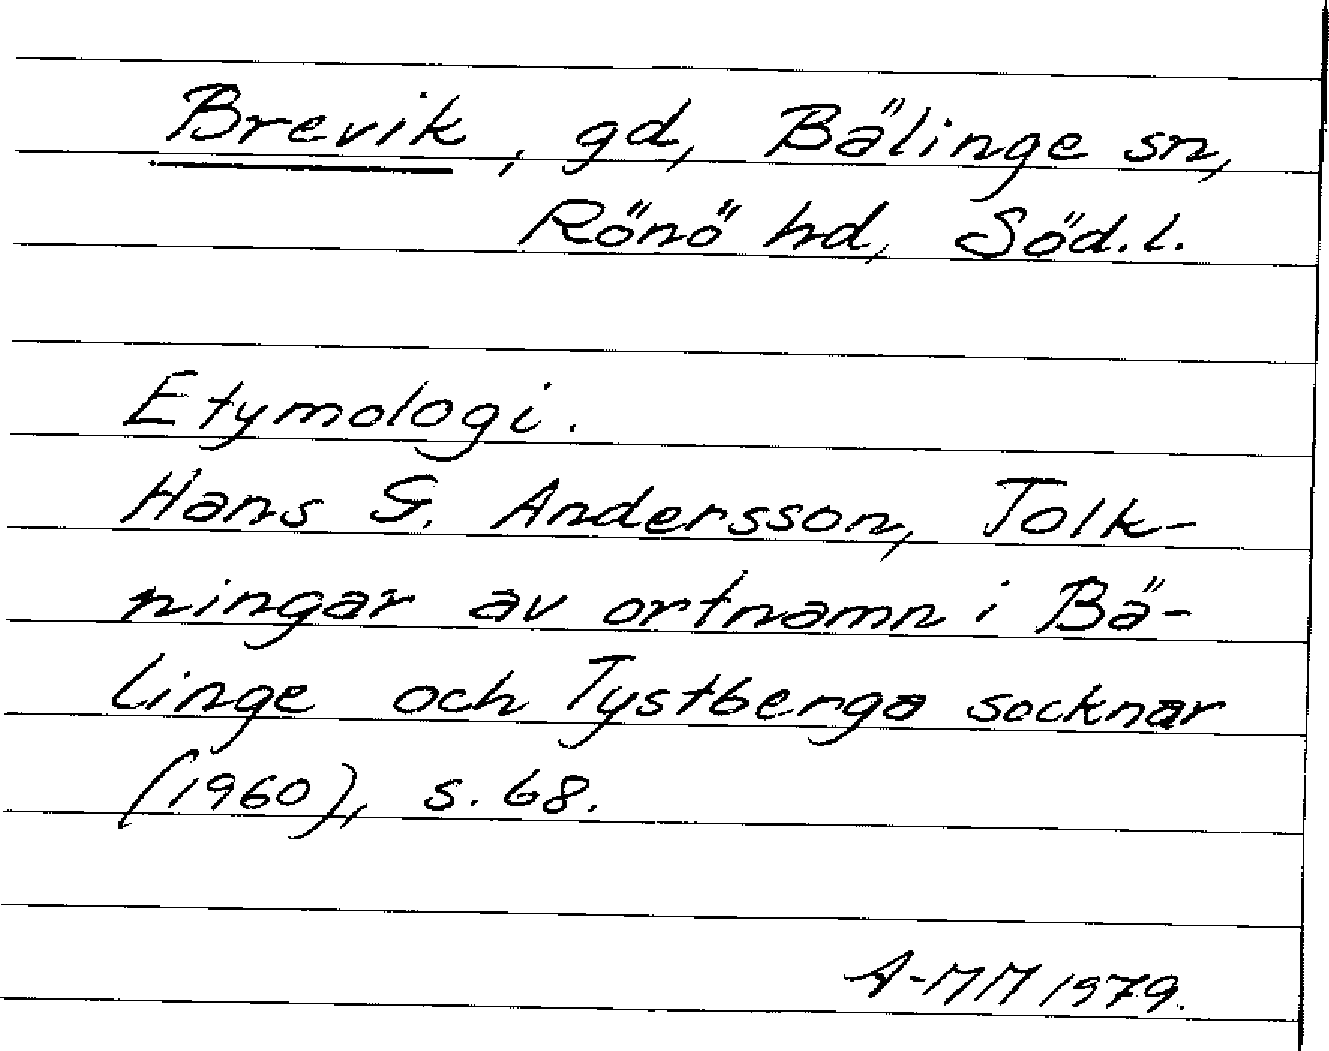 Brevik, gd, Bälinge sn,
Rönö hd, Söd.l.
Etymologi.
Hans G. Andersson, Tolk-
ningar av ortnamn i Bä-
linge och Tystberga socknar
(1960), s. 68.
A-MM 1979.